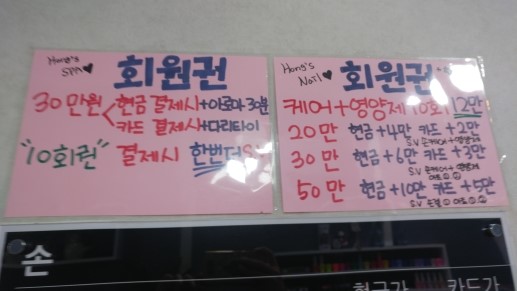 Hong's
SPA♥
회원권
30만원 < 현금 결제시 + 아로마 30분
카드 결제시 + 다리타이
"10회권" 결제시 한번 더 S.V
Hong's
Nail♥
회원권
케어 + 영양제 10회 12만
20만 현금 + 4만 카드 + 2만
S.V 손케어 + 영양제
30만 현금 + 6만 카드 + 3만
S.V 손케어 + 영양제
50만 현금 + 10만 카드 + 5만
S.V
손
현금가 카드가